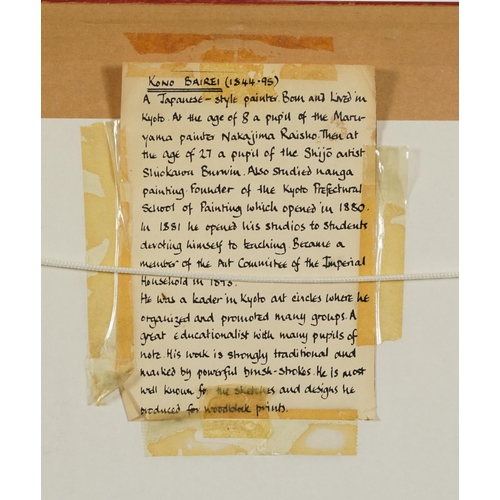 KONO BAIREI (1844-95)
A Japanese-style painter. Born and lived in
Kyoto. At the age of 8 a pupil of the Maru-
yama painter Nakajima Raisho. Then at
the age of 27 a pupil of the Shijō artist
Shiokawa Bunrin. Also studied nanga
painting. Founder of the Kyoto Prefectural
School of Painting which opened in 1880.
In 1881 he opened his studios to students
devoting himself to teaching. Became a
member of the Art Committee of the Imperial
Household in 1893.
He was a leader in Kyoto art circles where he
organized and promoted many groups. A
great educationalist with many pupils of
note. His work is strongly traditional and
marked by powerful brush-strokes. He is most
well known for the sketches and designs he
produced for woodblock prints.